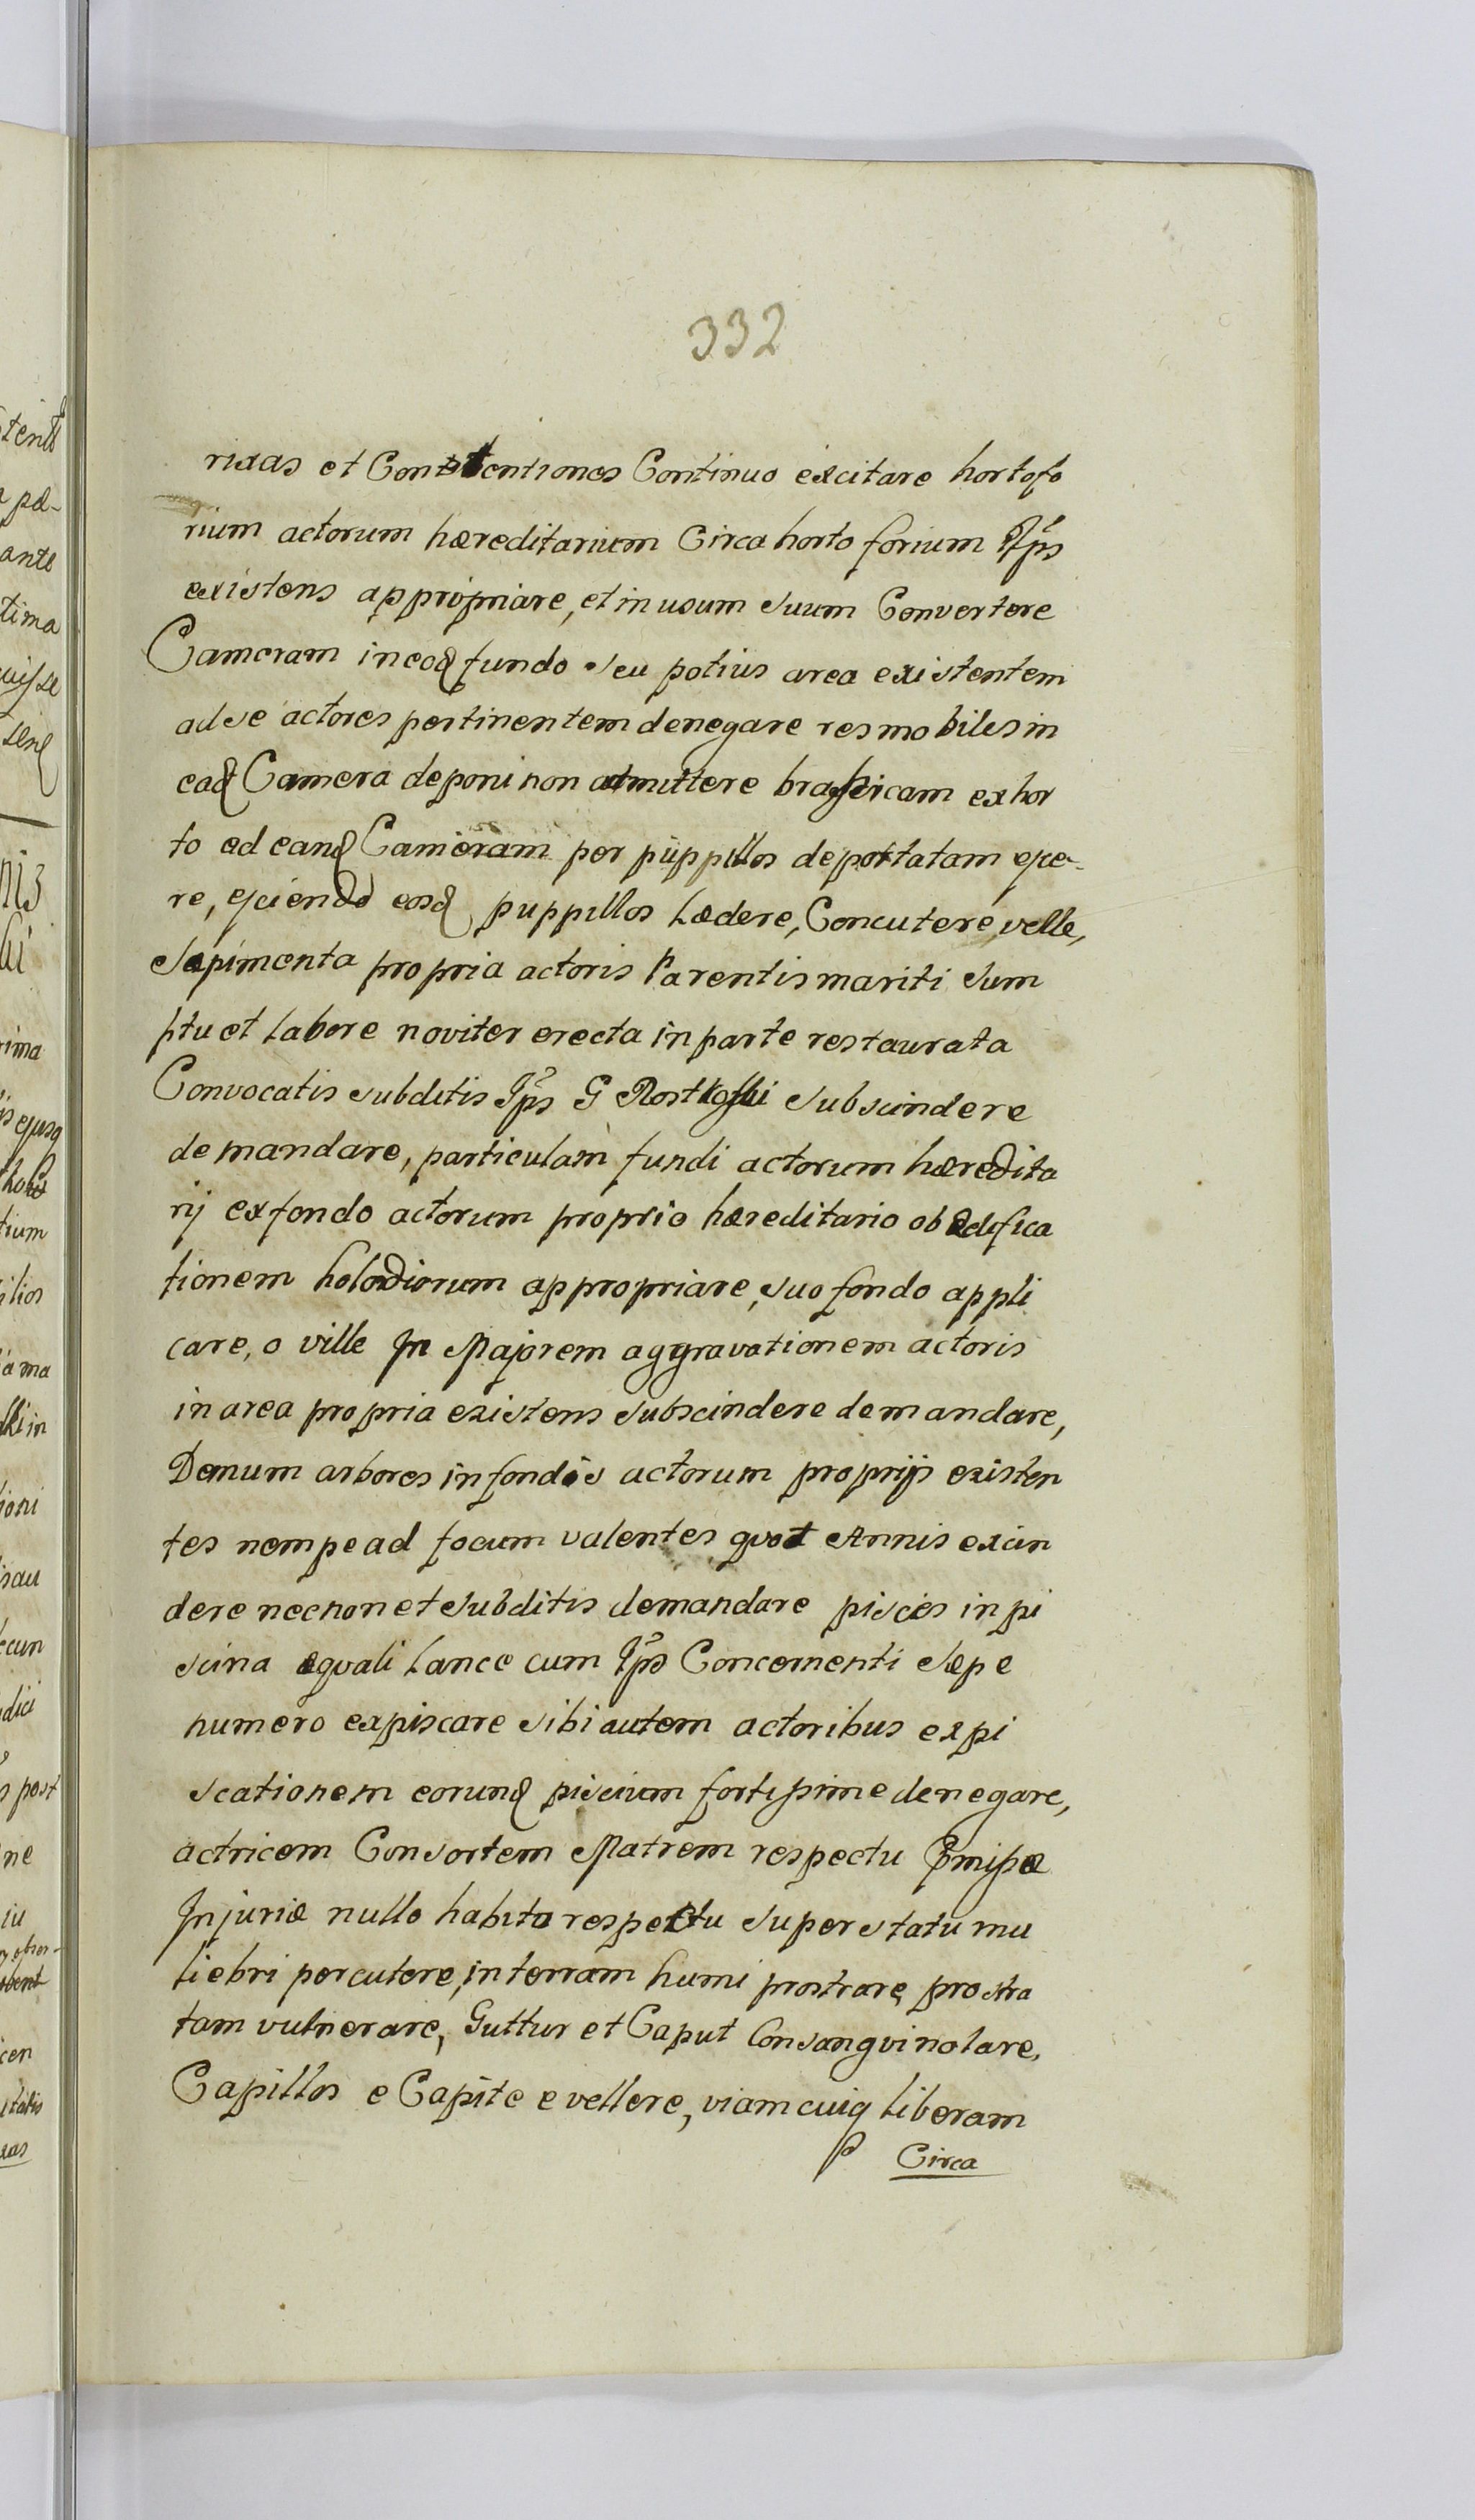 332
rixas et Contentiones Continuo excitare hortofo
rium actorum hæreditarium Circa horto forium Ips
existens appropriare, et in usum suum Convertere
Cameram in eod fundo seu potius area existentem
ad se actores pertinentem denegare res mobiles in
ead Camera deponi non admittere brassicam ex hor
to ad eand Cameram per puppillos deportatam ejce-
re, ejciendo eosd puppillos Lædere, Concutere velle,
Sæpimenta propria actoris Parentis mariti Sum
ptu et Labore noviter erecta in parte restaurata
Convocatis subditis Ips G Rostkoski Subscindere
demandare, particulam fundi actorum hæredita
rij ex fondo actorum proprio hæreditario ob ædifica
tionem holodiorum appropriare, suo fondo appli
care, o ville In Majorem aggravationem actoris
in area propria existens subscindere demandare,
Demum arbores in fondis actorum proprijs existen
tes nempe ad focum valentes quot Annis excin
dere necnon et Subditis demandare pisces in pi
scina æquali Lance cum Ips Concernenti Sæpe
numero expiscare sibi autem actoribus expi
scationem eorund piscium fortissime denegare,
actricem Consortem Matrem respectu
Injuriæ nullo habito respectu super statu mu
liebri percutere, in terram humi prostrare, prostra
tam vulnerare, Guttur et Caput Consangvinolare,
Capillos e Capite evellere, viam cuiq Liberam
Circa